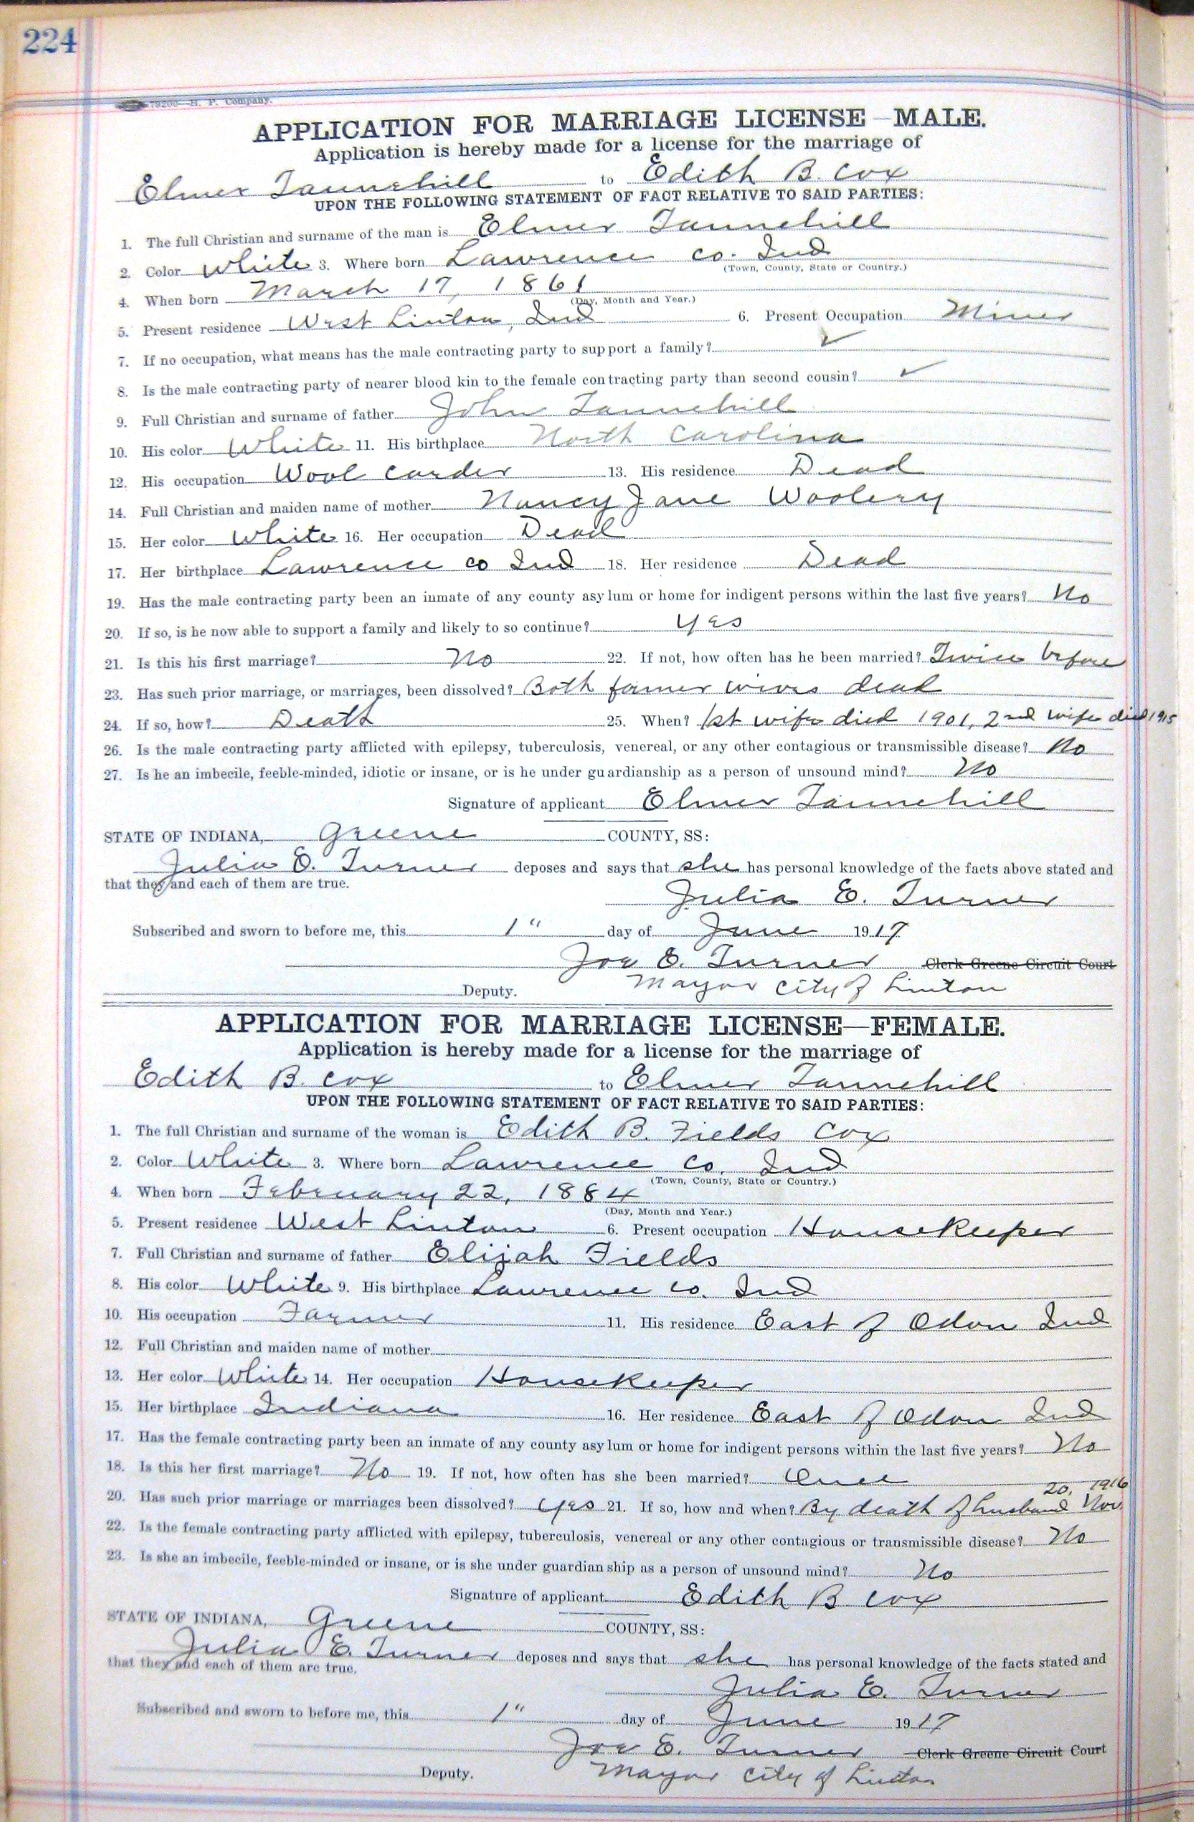 224
79200—H. P. Company.
APPLICATION FOR MARRIAGE LICENSE—MALE.
Application is hereby made for a license for the marriage of
Elmer Tannehill to Edith B. Cox
UPON THE FOLLOWING STATEMENT OF FACT RELATIVE TO SAID PARTIES:
1. The full Christian and surname of the man is Elmer Tannehill
2. Color White 3. Where born Lawrence Co. Ind
(Town, County, State or Country.)
4. When born March 17, 1861
(Day, Month and Year.)
5. Present residence West Linton, Ind 6. Present Occupation Miner
7. If no occupation, what means has the male contracting party to support a family? ✓
8. Is the male contracting party of nearer blood kin to the female contracting party than second cousin? ✓
9. Full Christian and surname of father John Tannehill
10. His color White 11. His birthplace North Carolina
12. His occupation Wool Carder 13. His residence Dead
14. Full Christian and maiden name of mother Nancy Jane Woolery
15. Her color White 16. Her occupation Dead
17. Her birthplace Lawrence Co Ind 18. Her residence Dead
19. Has the male contracting party been an inmate of any county asylum or home for indigent persons within the last five years? No
20. If so, is he now able to support a family and likely to so continue? Yes
21. Is this his first marriage? No 22. If not, how often has he been married? Twice before
23. Has such prior marriage, or marriages, been dissolved? Both former wives dead
24. If so, how? Death 25. When? 1st wife died 1901, 2nd wife died 1915
26. Is the male contracting party afflicted with epilepsy, tuberculosis, venereal, or any other contagious or transmissible disease? No
27. Is he an imbecile, feeble-minded, idiotic or insane, or is he under guardianship as a person of unsound mind? No
Signature of applicant Elmer Tannehill
STATE OF INDIANA, Greene COUNTY, SS:
Julia E. Turner deposes and says that she has personal knowledge of the facts above stated and
that they and each of them are true.
Julia E. Turner
Subscribed and sworn to before me, this 1" day of June 1917
Joe E. Turner Clerk Greene Circuit Court
Deputy. Mayor City of Linton
APPLICATION FOR MARRIAGE LICENSE—FEMALE.
Application is hereby made for a license for the marriage of
Edith B. Cox to Elmer Tannehill
UPON THE FOLLOWING STATEMENT OF FACT RELATIVE TO SAID PARTIES:
1. The full Christian and surname of the woman is Edith B. Fields Cox
2. Color White 3. Where born Lawrence Co. Ind
(Town, County, State or Country.)
4. When born February 22, 1884
(Day, Month and Year.)
5. Present residence West Linton 6. Present occupation Housekeeper
7. Full Christian and surname of father Elijah Fields
8. His color White 9. His birthplace Lawrence Co. Ind
10. His occupation Farmer 11. His residence East of Odon Ind
12. Full Christian and maiden name of mother
13. Her color White 14. Her occupation Housekeeper
15. Her birthplace Indiana 16. Her residence East of Odon Ind
17. Has the female contracting party been an inmate of any county asylum or home for indigent persons within the last five years? No
18. Is this her first marriage? No 19. If not, how often has she been married? Once
20, 1916
20. Has such prior marriage or marriages been dissolved? Yes 21. If so, how and when? By death of husband Nov.
22. Is the female contracting party afflicted with epilepsy, tuberculosis, venereal or any other contagious or transmissible disease? No
23. Is she an imbecile, feeble-minded or insane, or is she under guardianship as a person of unsound mind? No
Signature of applicant Edith B Cox
STATE OF INDIANA, Greene COUNTY, SS:
Julia E. Turner deposes and says that she has personal knowledge of the facts stated and
that they and each of them are true.
Julia E. Turner
Subscribed and sworn to before me, this 1" day of June 1917
Joe E. Turner Clerk Greene Circuit Court
Deputy. Mayor City of Linton